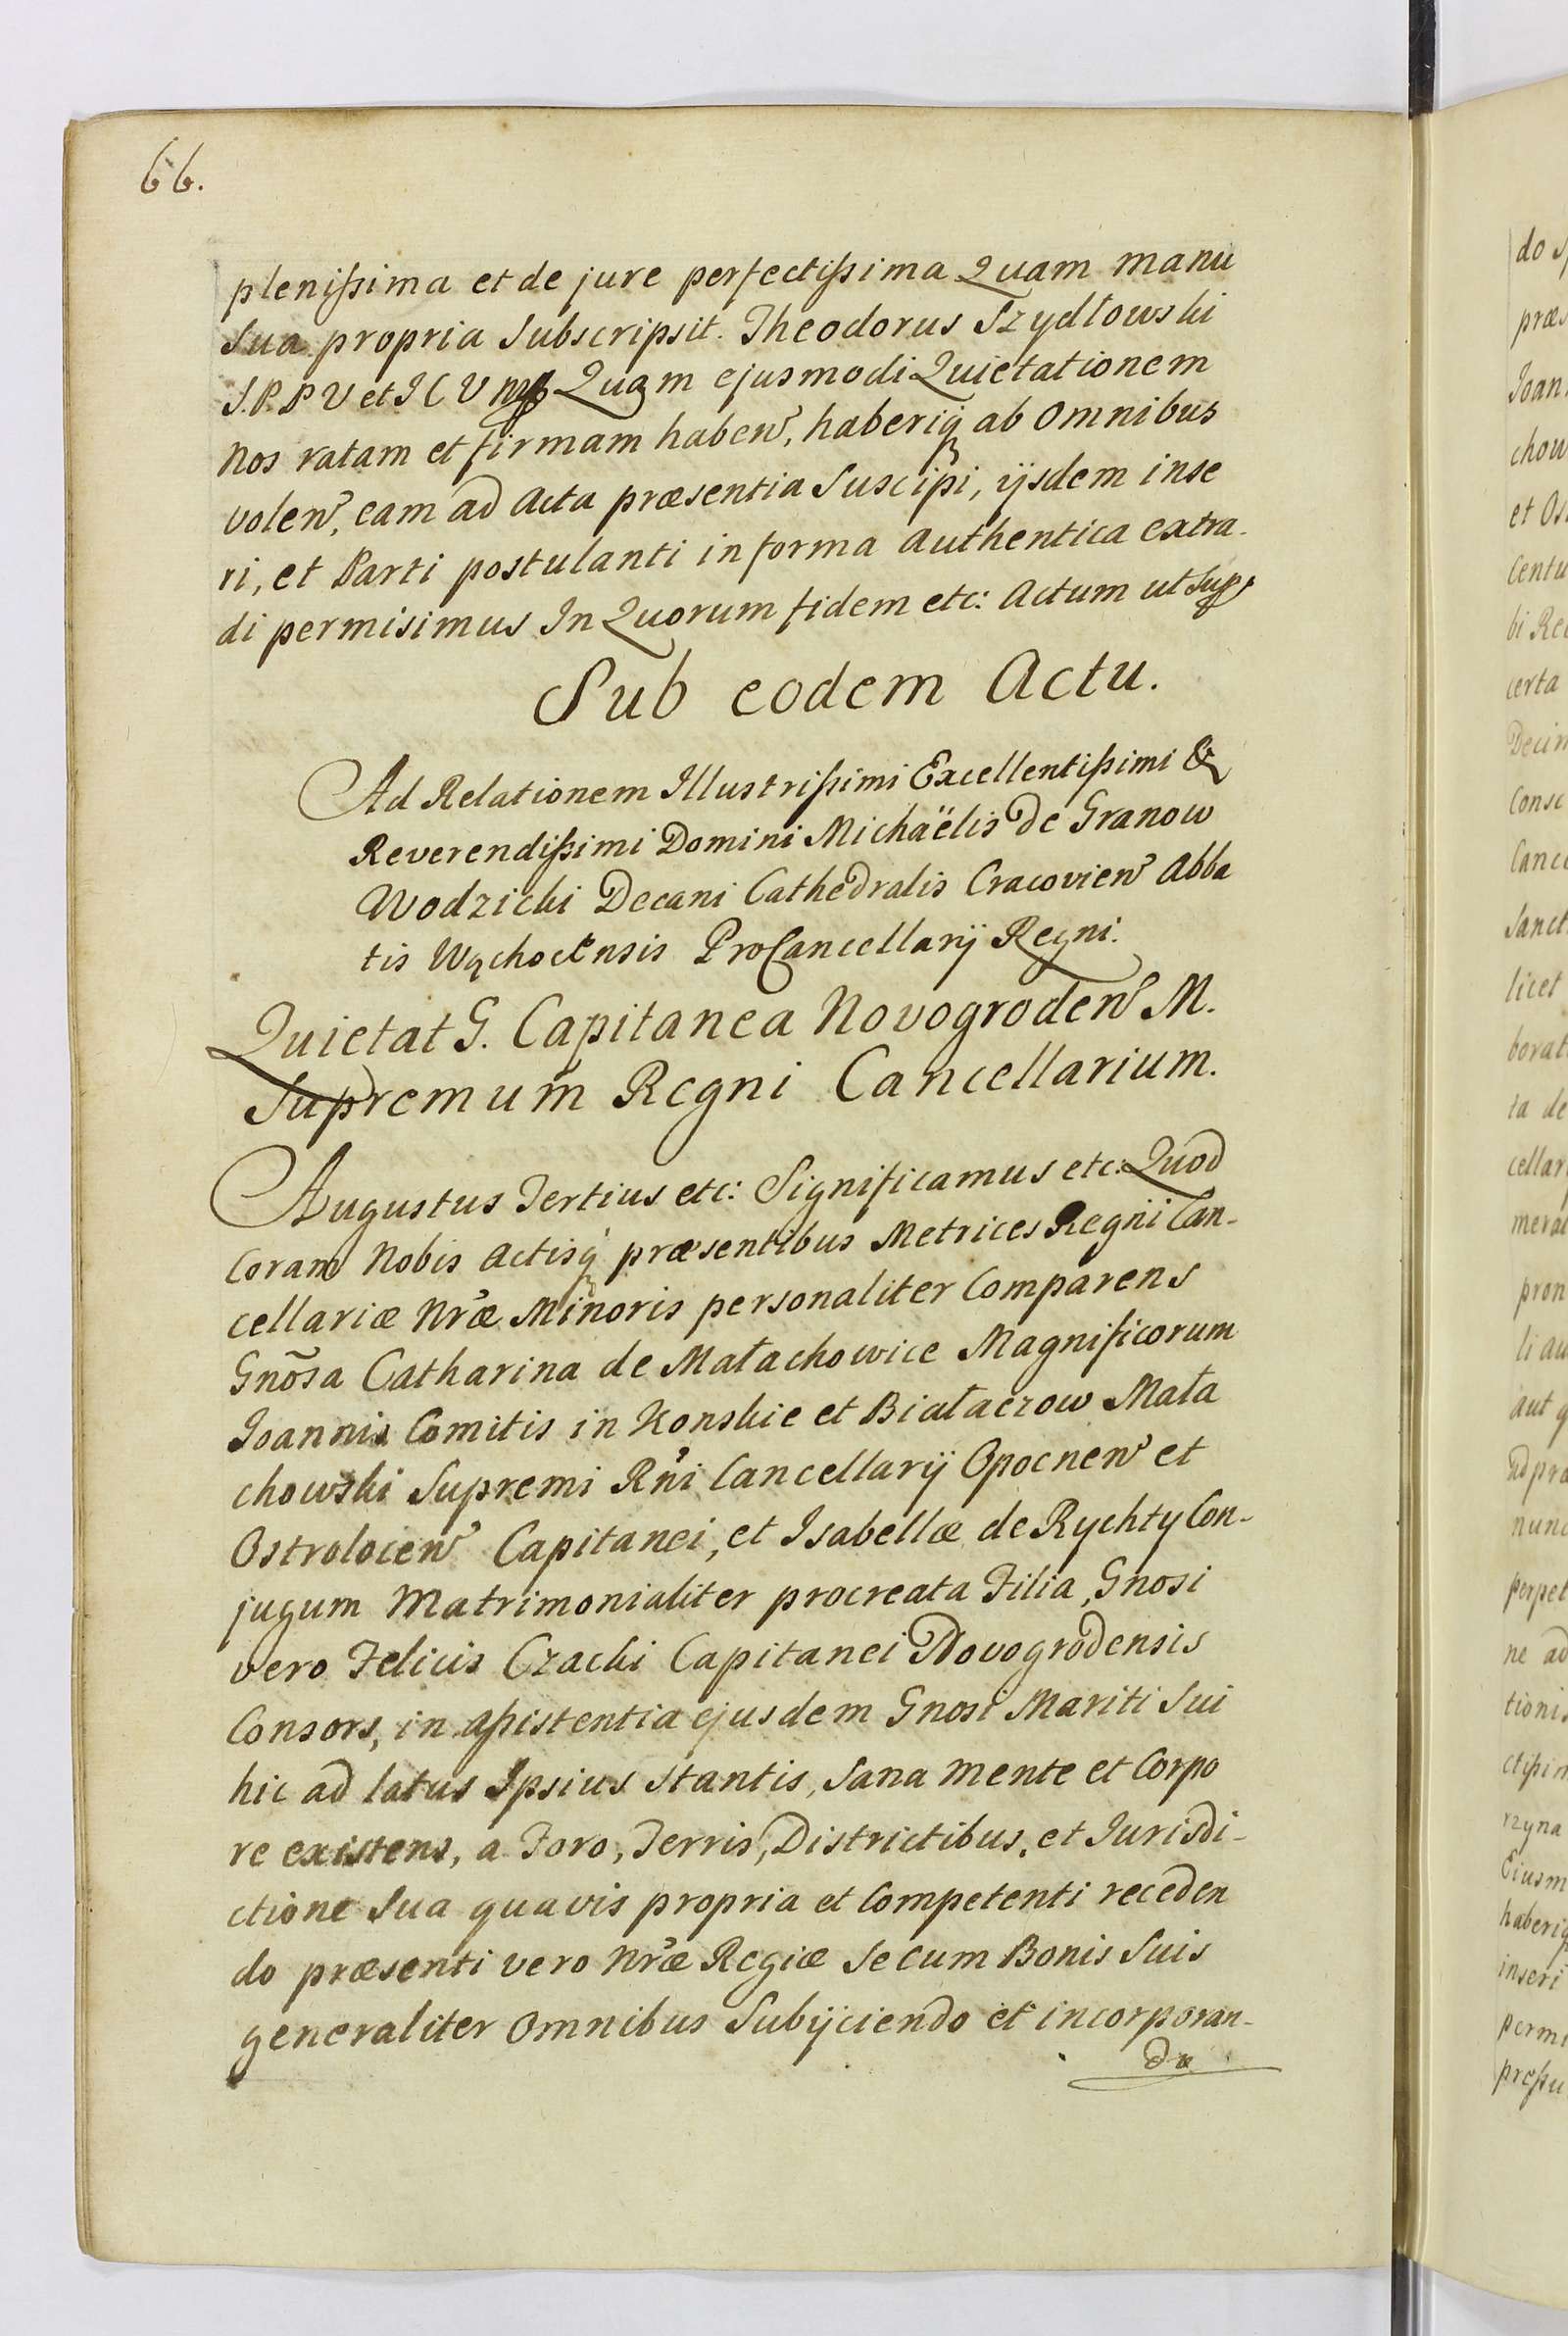 66.
plenißima et de jure perfectißima Quam manu
sua propria Subscripsit. Theodorus Szydłowski
S.P.P V et J C V mp Quam ejusmodi Quietationem
Nos ratam et firmam haben̄, haberiq̃ ab omnibus
volen̄, eam ad acta præsentia Suscipi, ijsdem inse
ri, et Parti postulanti in forma authentica extra-
di permisimus In Quorum fidem etc: Actum ut supr
Sub eodem Actu.
Ad Relationem Illustrißimi Excellentißimi &
Reverendißimi Domini Michaëlis de Granow
Wodzicki Decani Cathedralis Cracovien̄ Abba
tis Wąchocensis ProCancellarij Regni.
Quietat G. Capitanea Novogroden̄ M.
Supremum Regni Cancellarium.
Augustus Tertius etc: Significamus etc: Quod
Coram Nobis Actisq̃ præsentibus Metrices Regni Can-
cellariæ Nr̃æ Minoris personaliter Comparens
Gnõsa Catharina de Małachowice Magnificorum
Joannis Comitis in Konskie et Białaczow Mała
chowski Supremi Rñi Cancellarij Opocnen̄ et
Ostrolocen̄ Capitanei, et Isabellæ de Rychty Con-
jugum Matrimonialiter procreata Filia, Gnosi
vero Felicis Czacki Capitanei Novogrodensis
Consors, in aßistentia ejusdem Gnosi Mariti Sui
hic ad latus Ipsius stantis, Sana mente et Corpo
re existens, a Foro, Terris, Districtibus, et Jurisdi-
ctione Sua quavis propria et Competenti receden
do præsenti vero Nr̃æ Regiæ se cum Bonis Suis
generaliter Omnibus Subijciendo et incorporan-
do